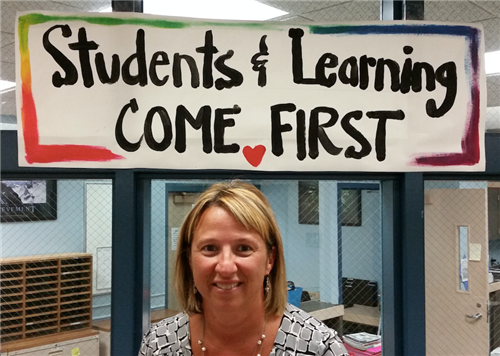 Students & Learning
COME FIRST